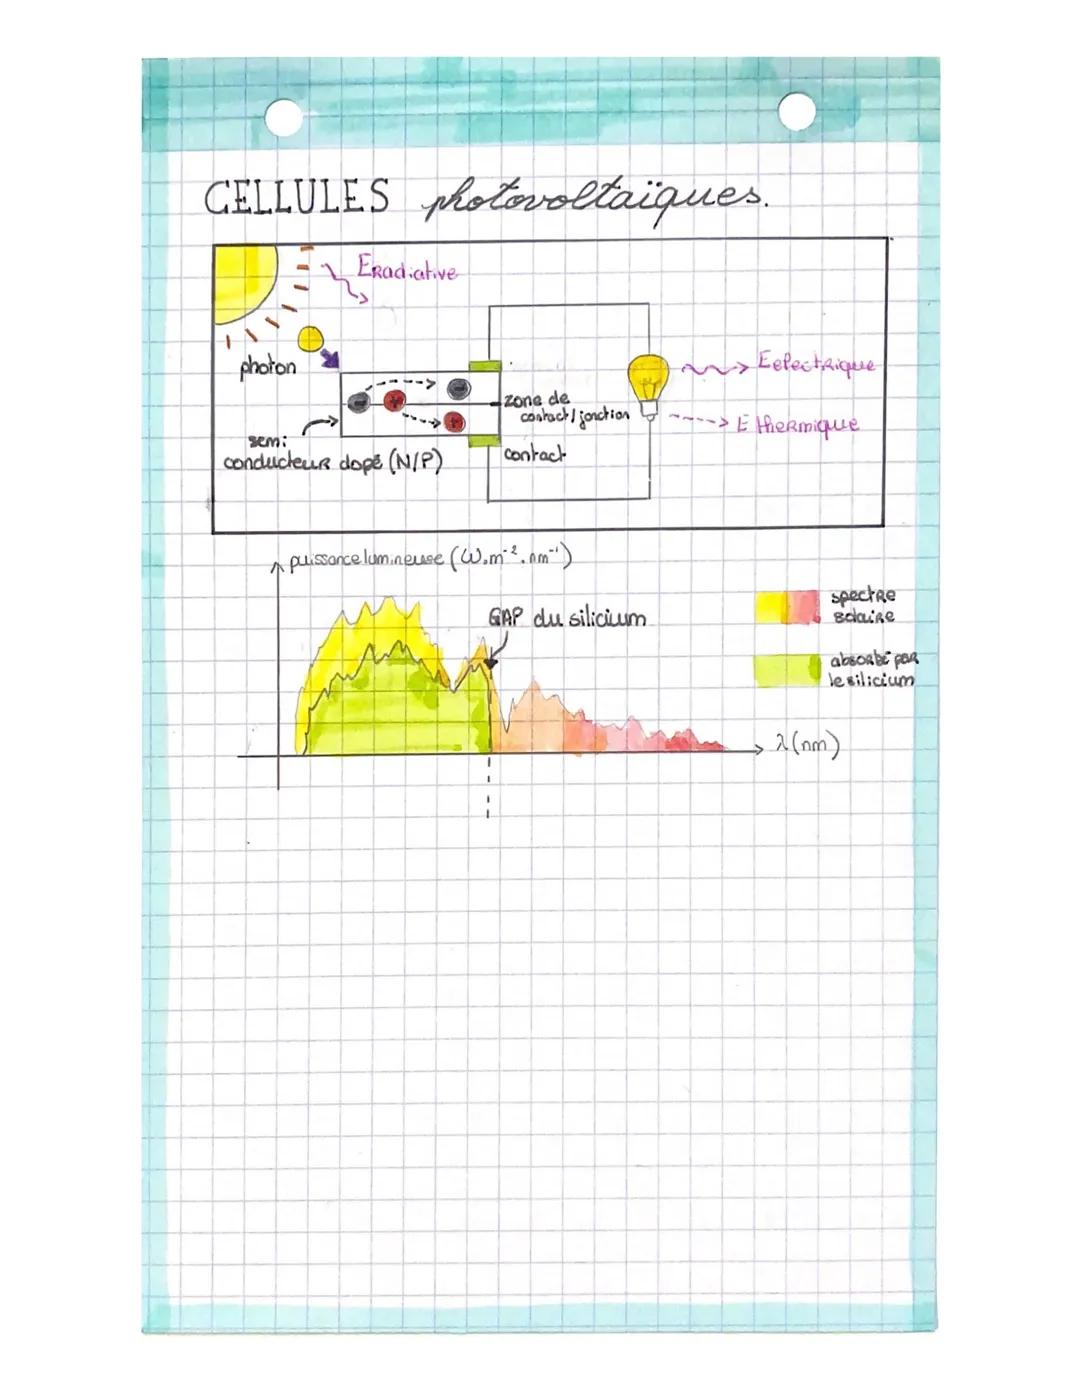 CELLULES photovoltaïques.
Eradiative
photon
Eelectrique
zone de
contact/jonction
E thermique
semi
conducteur dopé (N/P)
contact
puissance lumineuse (W.m⁻².nm⁻¹)
GAP du silicium
spectre
solaire
absorbé par
le silicium
λ(nm)